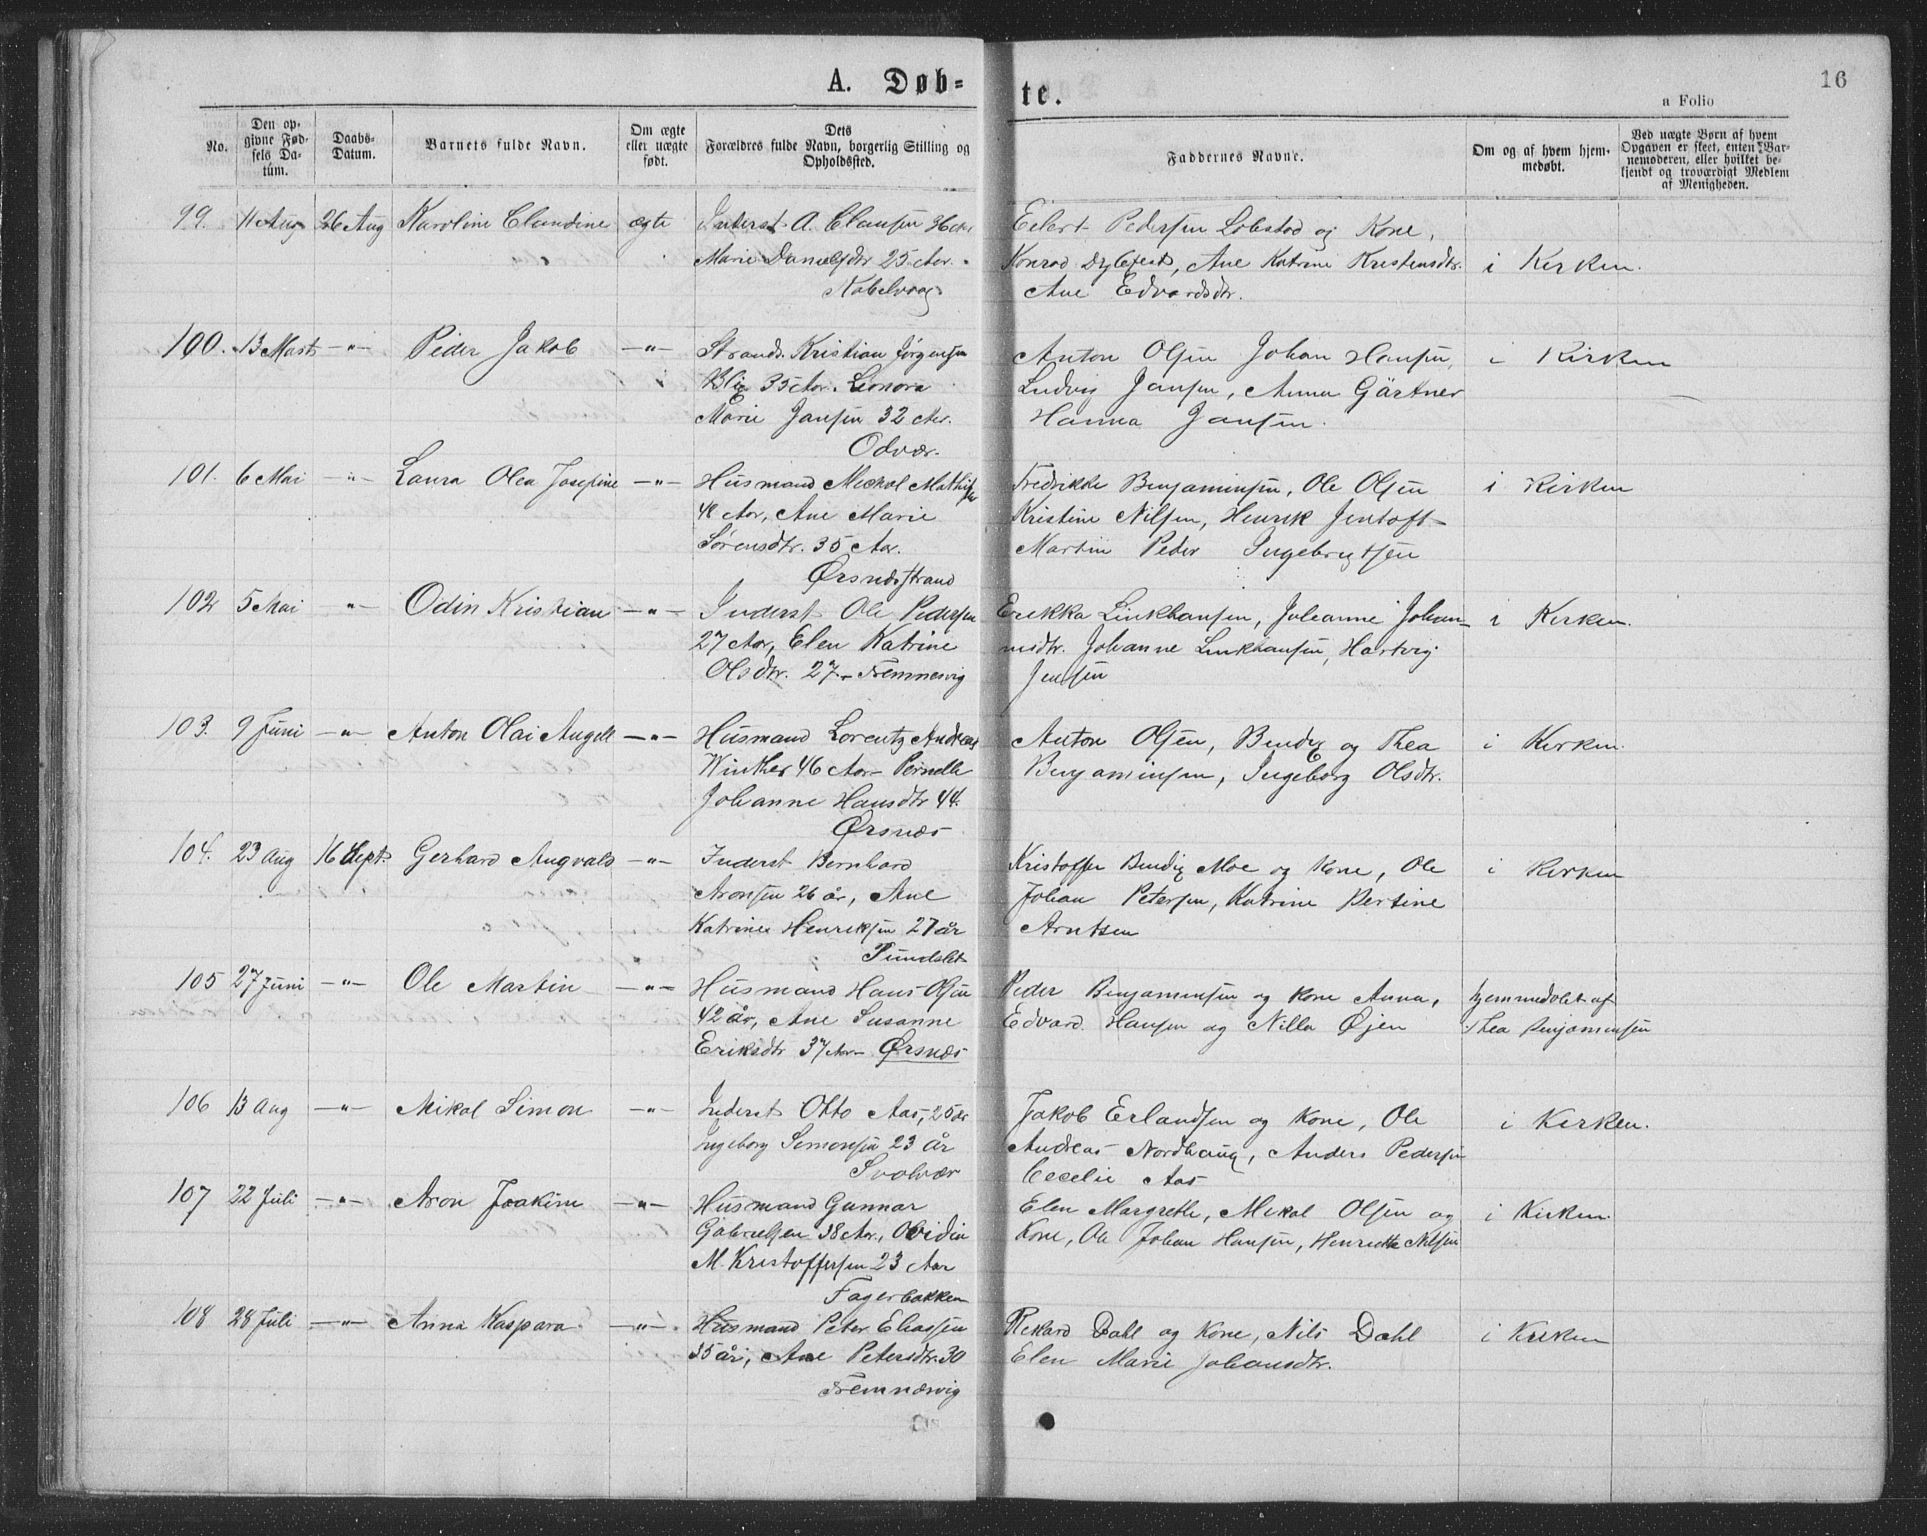 A. Døb-
te.
16
a Folio
No.
Den op-
givne Fød-
sels Da-
tum.
Daabs-
Datum.
Barnets fulde Navn.
Om ægte
eller uægte
født.
Dets
Forældres fulde Navn, borgerlig Stilling og
Opholdssted.
Faddernes Navne.
Om og af hvem hjem-
medøbt.
Ved uægte Børn af hvem
Opgaven er skeet, enten Bar-
nemoderen, eller hvilket be-
kjendt og troværdigt Medlem
af Menigheden.
99. 11 Aug 26 Aug Karoline Claudine ægte Inderst A. Clausen 36
Marie Danielsdtr 25 Aar.
Kabelvaag
Eilert Pedersen Lobstad og Kone,
Konrad Ane Katrine Kristensdtr.
Ane Edvardsdtr.
i Kirken.
100. 13 Marts -"- Peder Jakob -"- Strands. Kristian Jørgensen
Blix 35 Aar. Leonora
Marie Jansen 32 Aar.
Odvær.
Anton Olsen Johan Hansen,
Ludvig Jansen, Anna Gärtner
Hanna Jansen.
i Kirken
101. 6 Mai -"- Laura Olea Josefine -"- Husmand Mechal Mathisen
48 Aar, Ane Marie
Sørensdtr. 35 Aar.
Ørsnæsstrand
Fredrikke Benjaminsen, Ole Olsen
Kristine Nilsen, Henrik Jentoft
Martin Peder Ingebrigtsen
i Kirken
102 5 Mai -"- Odin Kristian -"- Inderst Ole Pedersen
27 Aar, Elen Katrine
Olsdtr. 27 - Fremnesvig
Erikka Linkhausen, Juleanne Johan-
nsdtr. Johanne Linkhausen, Hartvig
Jensen
i Kirken.
103. 9 Juni -"- Anton Olai Angell -"- Husmand Lorentz Andreas
Winther 46 Aar - Pernelle
Johanne Hansdtr 44.
Ørsnæs
Anton Olsen, Bendix og Thea
Benjaminsen, Ingeborg Olsdtr.
i Kirken.
104. 23 Aug 16 Sept. Gerhard Angvald -"- Inderst Bernhard
Aronsen 26 år, Ane
Katrine Henriksen 27 år
Pundslet
Kristoffer Bendix Moe og Kone, Ole
Johan Petersen, Katrine Bertine
Arntsen
i Kirken
105 27 Juni -"- Ole Martin -"- Husmand Hans Olsen
42 år, Ane Susanne
Eriksdtr 37 Aar - Ørsnæs
Peder Benjaminsen og Kone Anna,
Edvard Hansen og Nilla Øjen
hjemmedøbt af
Thea Benjaminsen
106 13 Aug -"- Mikal Simon -"- Inderst Otto Aas, 25 år
Ingeborg Simonsen 23 år
Svolvær
Jakob Erlandsen og Kone, Ole
Andreas Nordhaug, Anders Pedersen
Cecelie Aas
i Kirken.
107 22 Juli -"- Aron Joakim -"- Husmand Gunnar
Gabrielsen 38 Aar, Ovidia
M. Kristoffersen 23 Aar
Fagerbakken
Elen Margrethe, Mekal Olsen og
Kone, Ole Johan Hansen, Henriette Nilsen
i Kirken.
108 28 Juli -"- Anna Kaspara -"- Husmand Peter Eliassen
35 år, Ane Petersdtr. 30
Fremnæsvig
Rikard Dahl og Kone, Nils Dahl
Elen Marie Johansdtr.
i Kirken